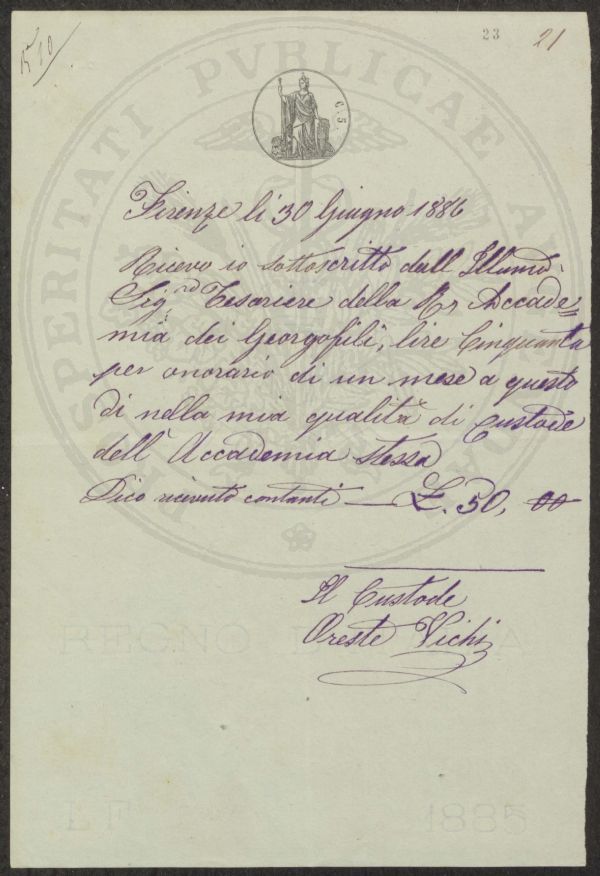 23
21
PROSPERITATI PVBLICAE AVGENDAE
C. 5.
Firenze li 30 Giugno 1886
Ricevo io sottoscritto dall Illumō.
Sig.re Tesoriere della R. Accade=
mia dei Georgofili, lire Cinquanta
per onorario di un mese a questo
dì nella mia qualità di Custode
dell' Accademia stessa
Dico ricevuto contanti — £. 50, 00
Il Custode
Oreste Vichi
REGNO D'ITALIA
1885